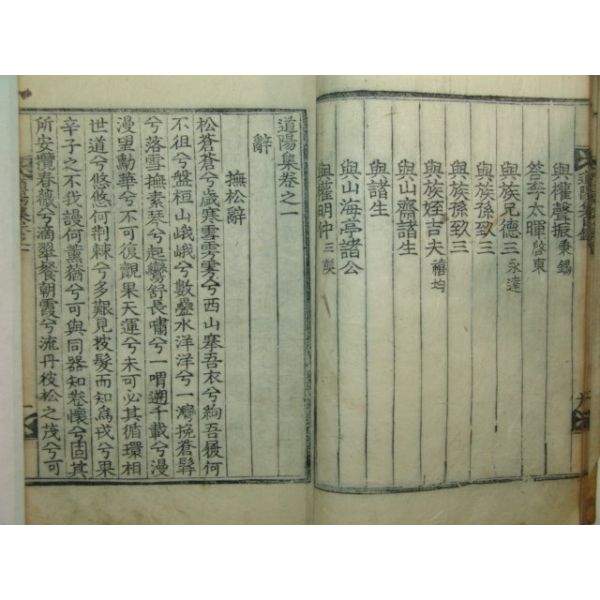 與權聲振秉錫
答李太暉啓東
與族兄德三永達
與族孫致三
與族孫致三
與族姪吉夫禧均
與山齋諸生
與諸生
與山海亭諸公
與權明仲三燮
道陽集卷之一
辭
撫松辭
松蒼蒼兮歲寒雪雰雰兮西山搴吾衣兮絇吾履何
不徂兮盤桓山峨峨兮數疊水洋洋兮一灣挽蒼髯
兮落雪撫素琴兮起鸞舒長嘯兮一喟遡千載兮漫
漫望勳華兮不可復覿果天運兮未可必其循環相
世道兮悠悠何荆棘兮多艱見披髮而知爲戎兮果
辛子之不我謾何薰蕕兮可與同器知卷懷兮固其
所安攬春薇兮滴翠餐朝霞兮流丹彼松之茂兮可